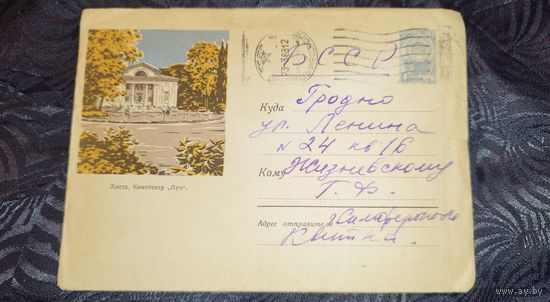 БССР
Куда Гродно
ул. Ленина
N 24 кв 1б
Кому Жизневскому
Г. Ф.
Адрес отправителя: г Симферополь
Хоста. Кинотеатр „Луч“.
www.ay.by